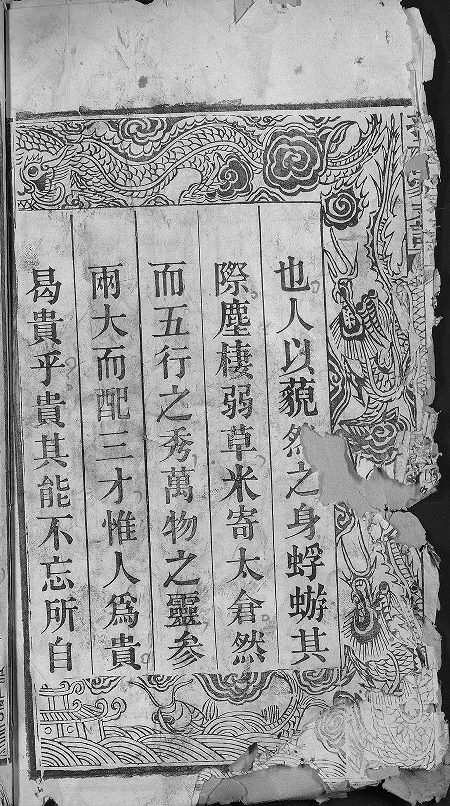 也人以藐然之身蜉蝣其
際塵棲弱草米寄太倉然
而五行之秀萬物之靈参
兩大而配三才惟人爲貴
曷貴乎貴其能不忘所自